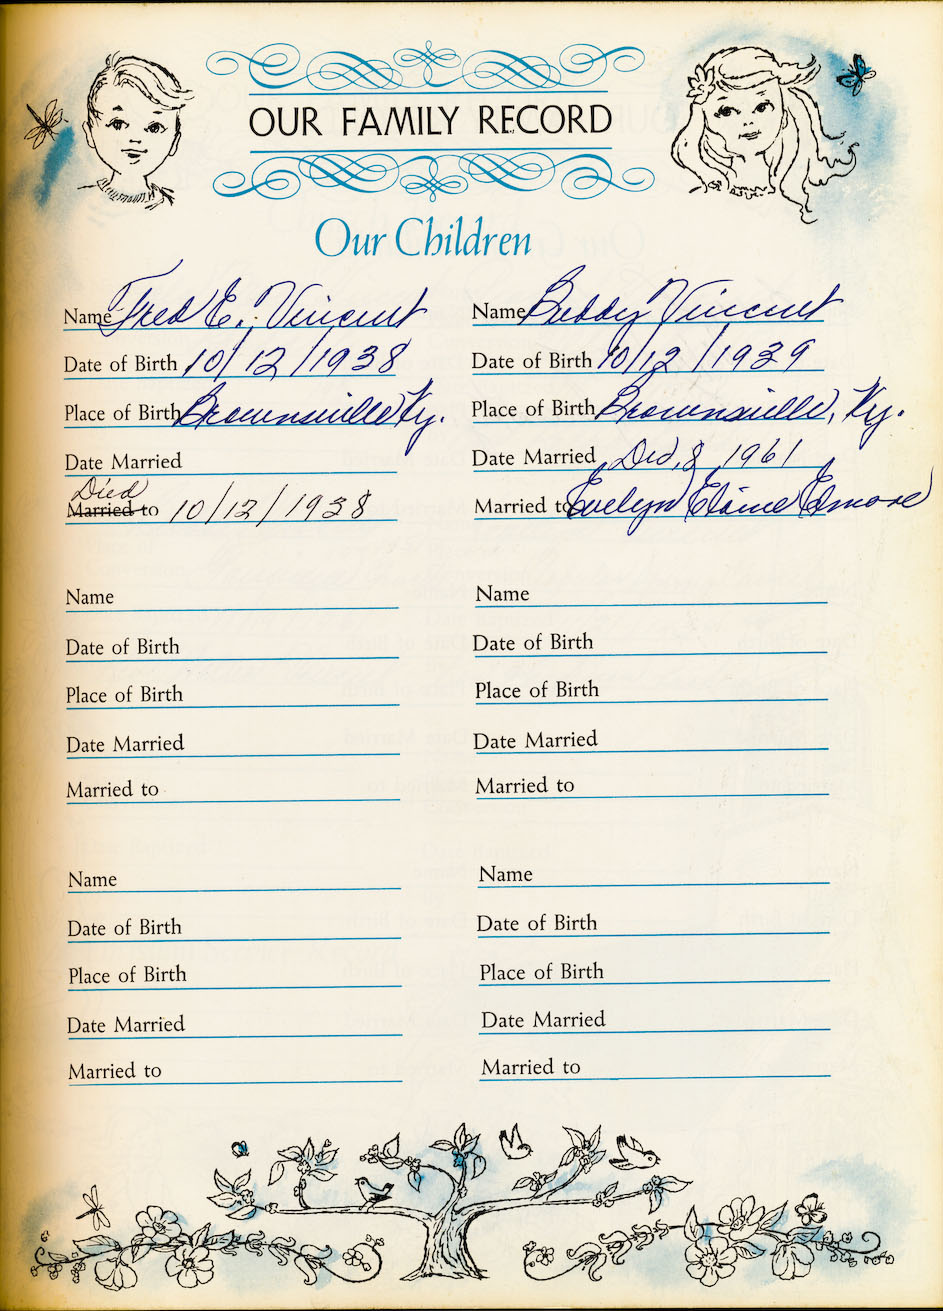 OUR FAMILY RECORD
Our Children
Name Fred E. Vincent
Date of Birth 10/12/1938
Place of Birth Brownsville Ky.
Date Married
Died
Married to 10/12/1938
Name Bobby Vincent
Date of Birth 10/12/1939
Place of Birth Brownsville, Ky.
Date Married Ded, 8, 1961
Married to Evelyn Elaine Elmore
Name
Date of Birth
Place of Birth
Date Married
Married to
Name
Date of Birth
Place of Birth
Date Married
Married to
Name
Date of Birth
Place of Birth
Date Married
Married to
Name
Date of Birth
Place of Birth
Date Married
Married to